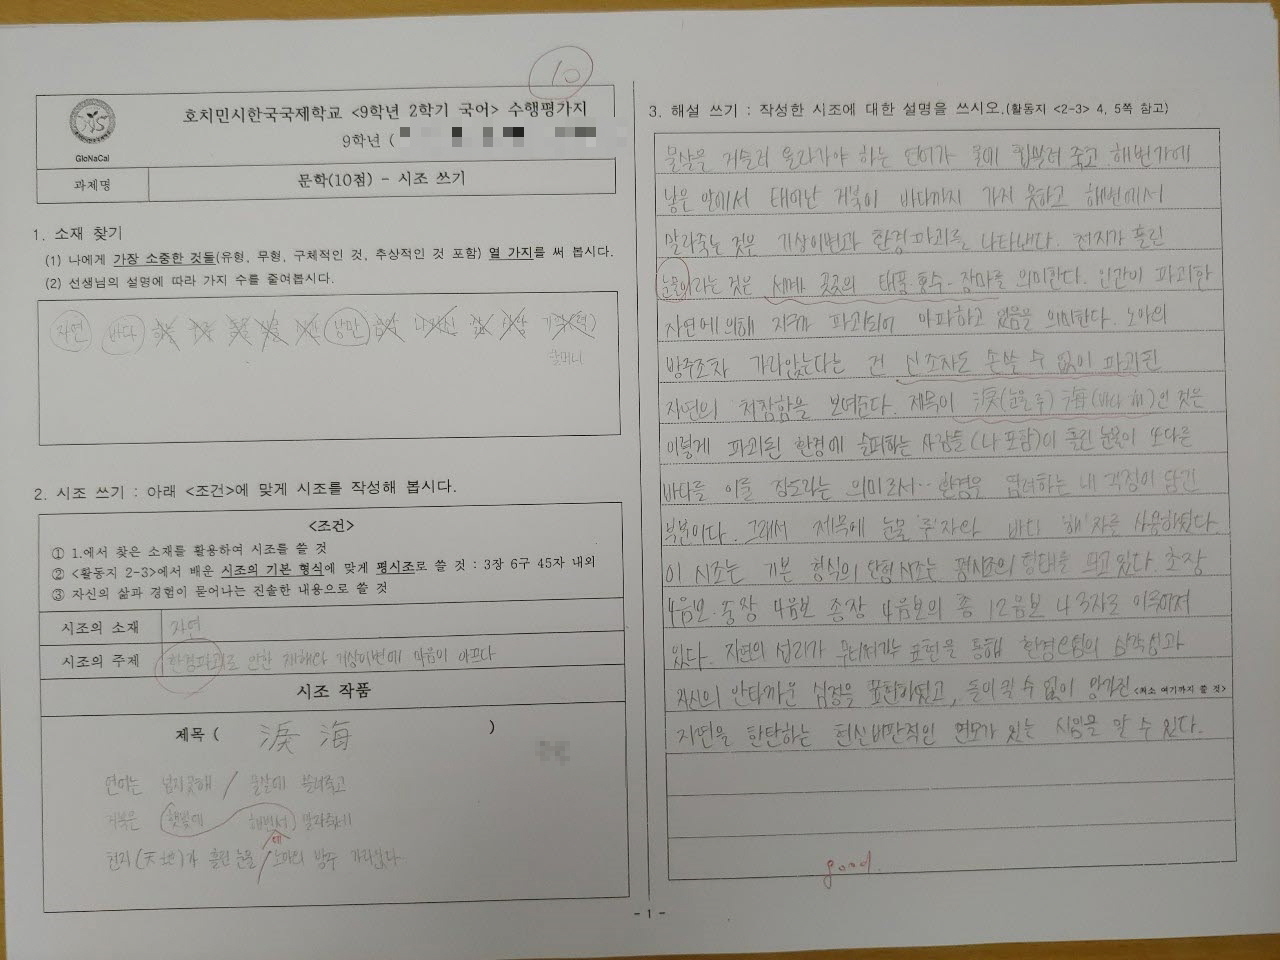 10
호치민시한국국제학교 <9학년 2학기 국어> 수행평가지
9학년 (
GloNaCal
과제명
문학(10점) - 시조 쓰기
1. 소재 찾기
(1) 나에게 가장 소중한 것들(유형, 무형, 구체적인 것, 추상적인 것 포함) 열 가지를 써 봅시다.
(2) 선생님의 설명에 따라 가지 수를 줄여봅시다.
자연 바다 낭만
할머니
2. 시조 쓰기 : 아래 <조건>에 맞게 시조를 작성해 봅시다.
<조건>
① 1.에서 찾은 소재를 활용하여 시조를 쓸 것
② <활동지 2-3>에서 배운 시조의 기본 형식에 맞게 평시조로 쓸 것 : 3장 6구 45자 내외
③ 자신의 삶과 경험이 묻어나는 진솔한 내용으로 쓸 것
시조의 소재
자연
시조의 주제
환경파괴로 인한 재해와 기상이변에 마음이 아프다
시조 작품
제목 ( 淚 海 )
연어는 넘지못해 / 물살에 쓸려죽고
거북은 햇빛에 해변서 말라죽네
에
천지(天地)가 흘린 눈물 / 노아의 방주 가라앉다
3. 해설 쓰기 : 작성한 시조에 대한 설명을 쓰시오.(활동지 <2-3> 4, 5쪽 참고)
물살을 거슬러 올라가야 하는 연어가 물에 휩쓸려 죽고 해변가에
낳은 알에서 태어난 거북이 바다까지 가지 못하고 해변에서
말라죽는 것은 기상이변과 환경파괴를 나타낸다. 천지가 흘린
눈물이라는 것은 세계 곳곳의 태풍·홍수·장마를 의미한다. 인간이 파괴한
자연에 의해 지구가 파괴되어 아파하고 있음을 의미한다. 노아의
방주조차 가라앉는다는 건 신조차도 손쓸 수 없이 파괴된
자연의 처참함을 보여준다. 제목이 淚(눈물 루) 海(바다 해)인 것은
이렇게 파괴된 환경에 슬퍼하는 사람들(나 포함)이 흘린 눈물이 또다른
바다를 이룰 정도라는 의미로서·· 환경을 염려하는 내 걱정이 담긴
부분이다. 그래서 제목에 눈물 '루'자와 바다 '해'자를 사용하였다.
이 시조는 기본 형식의 완형 시조는 평시조의 형태를 띄고 있다. 초장
4음보·중장 4음보 종장 4음보의 총 12음보 43자로 이루어져
있다. 자연의 섭리가 무너져가는 표현을 통해 환경오염의 심각성과
자신의 안타까운 심정을 표현하였고, 돌이킬 수 없이 망가진 <최소 여기까지 쓸 것>
자연을 한탄하는 현실비판적인 면모가 있는 시임을 알 수 있다.
good.
- 1 -